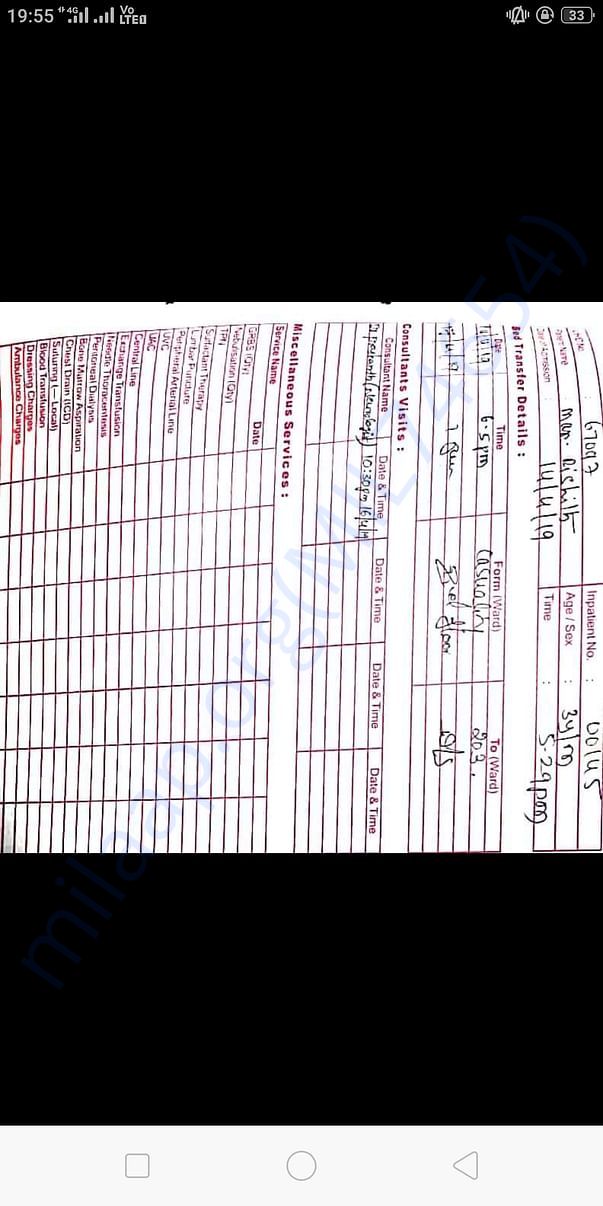 19:55 4G Vo LTE 33
UHID No. : 67097 Inpatient No. : 00145
Patient Name : Mas. Rishith Age / Sex : 3y/m
Date of Admission : 14/4/19 Time : 5:29pm
Bed Transfer Details :
Date Time Form (Ward) To (Ward)
6.5pm Casuality 203.
floor
Consultants Visits :
Consultant Name Date & Time Date & Time Date & Time Date & Time
Dr. prasanth (Neurologist) 10:30pm 16/4/19
Miscellaneous Services :
Service Name Date
GRBS (Qty)
Nebulisation (Qty)
TPN
Surfactant Thurapy
Lumbar Puncture
Peripheral Arterial Line
UVC
UAC
Central Line
Exchange Transfusion
Needle Thoracentesis
Peritoneal Dialysis
Bone Marrow Aspiration
Chest Drain (ICD)
Suturing (-- Local)
Blood Transfusion
Dressing Charges
Ambulance Charges
milaap.org(MIL74654)